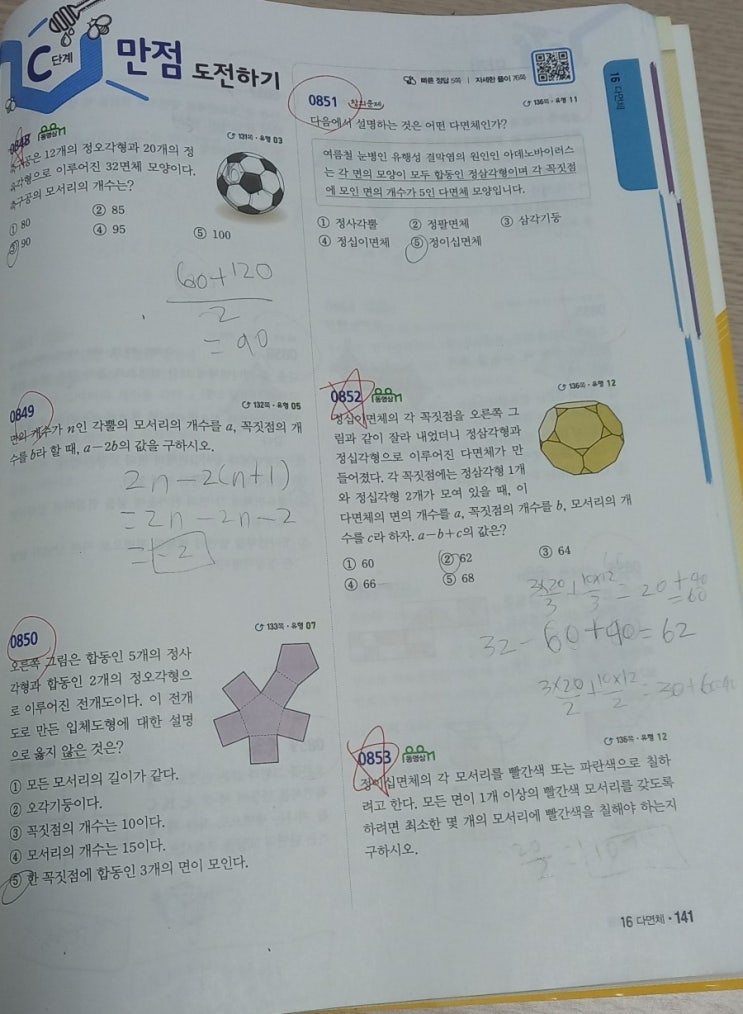 C단계 만점 도전하기
빠른 정답 5쪽 | 자세한 풀이 76쪽
0848 동영상
131쪽 · 유형 03
축구공은 12개의 정오각형과 20개의 정
육각형으로 이루어진 32면체 모양이다.
축구공의 모서리의 개수는?
① 80 ② 85
③ 90 ④ 95 ⑤ 100
60+120
2
= 90
0849
132쪽 · 유형 05
면의 개수가 n인 각뿔의 모서리의 개수를 a, 꼭짓점의 개
수를 b라 할 때, a-2b의 값을 구하시오.
2n-2(n+1)
=2n-2n-2
=-2
0850
133쪽 · 유형 07
오른쪽 그림은 합동인 5개의 정사
각형과 합동인 2개의 정오각형으
로 이루어진 전개도이다. 이 전개
도로 만든 입체도형에 대한 설명
으로 옳지 않은 것은?
① 모든 모서리의 길이가 같다.
② 오각기둥이다.
③ 꼭짓점의 개수는 10이다.
④ 모서리의 개수는 15이다.
⑤ 한 꼭짓점에 합동인 3개의 면이 모인다.
0851
136쪽 · 유형 11
다음에서 설명하는 것은 어떤 다면체인가?
여름철 눈병인 유행성 결막염의 원인인 아데노바이러스
는 각 면의 모양이 모두 합동인 정삼각형이며 각 꼭짓점
에 모인 면의 개수가 5인 다면체 모양입니다.
① 정사각뿔 ② 정팔면체 ③ 삼각기둥
④ 정십이면체 ⑤ 정이십면체
0852 동영상
136쪽 · 유형 12
정십이면체의 각 꼭짓점을 오른쪽 그
림과 같이 잘라 내었더니 정삼각형과
정십각형으로 이루어진 다면체가 만
들어졌다. 각 꼭짓점에는 정삼각형 1개
와 정십각형 2개가 모여 있을 때, 이
다면체의 면의 개수를 a, 꼭짓점의 개수를 b, 모서리의 개
수를 c라 하자. a-b+c의 값은?
① 60 ② 62 ③ 64
④ 66 ⑤ 68
32-60+90=62
0853 동영상
136쪽 · 유형 12
정이십면체의 각 모서리를 빨간색 또는 파란색으로 칠하
려고 한다. 모든 면이 1개 이상의 빨간색 모서리를 갖도록
하려면 최소한 몇 개의 모서리에 빨간색을 칠해야 하는지
구하시오.
16 다면체
16 다면체 · 141